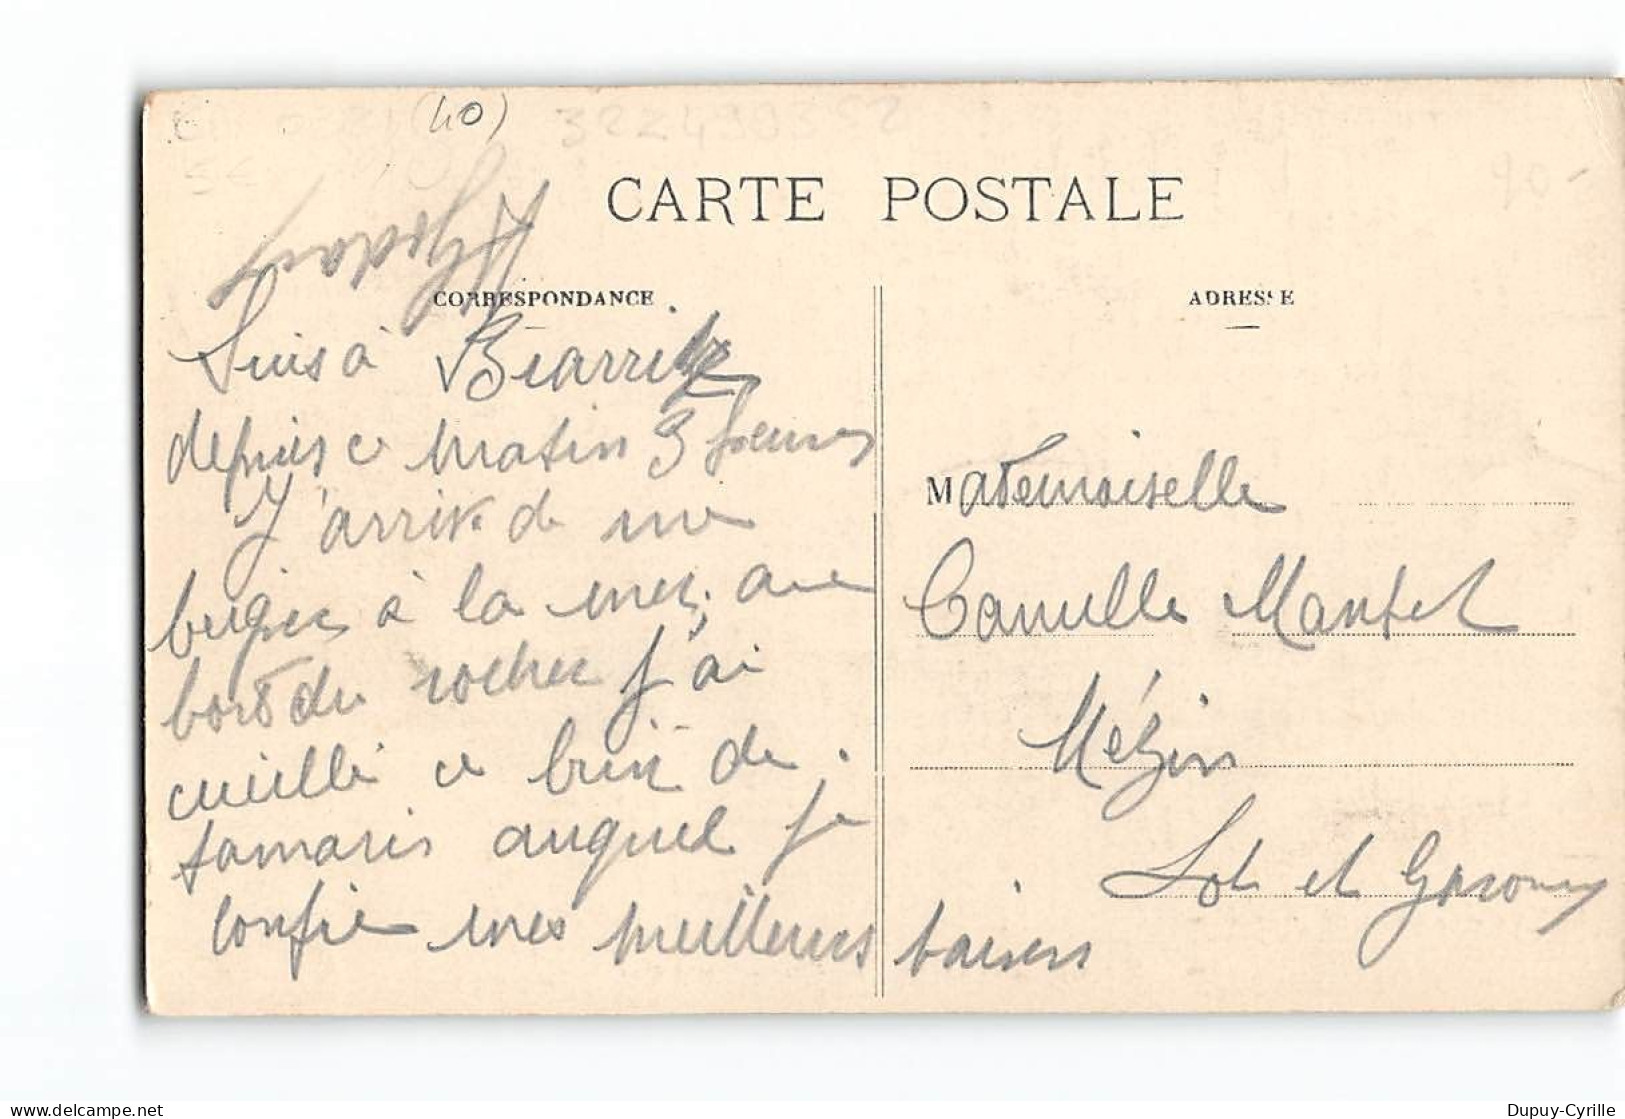 (40)
3224903C2
5€
90-
CARTE POSTALE
CORRESPONDANCE
ADRESSE
Suis à Biarritz
depuis ce matin 9 heures
J'arrive de me
beigner à la mer, au
bord du rocher j'ai
cueilli ce brin de
tamaris auquel je
confie mes meilleurs baisers
Mademoiselle
Camille
Mézin
Lot et Garonne
delcampe.net
Dupuy-Cyrille